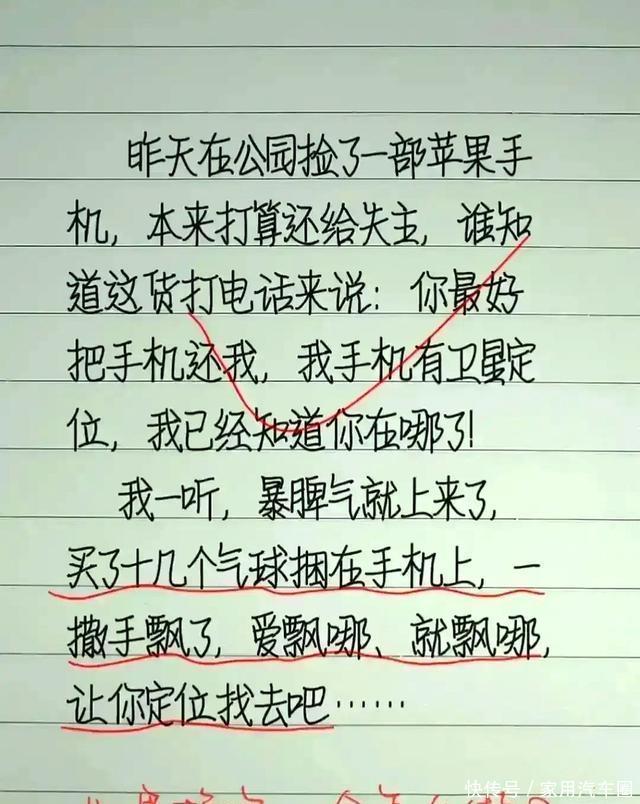 昨天在公园捡了一部苹果手
机，本来打算还给失主，谁知
道这货打电话来说：你最好
把手机还我，我手机有卫星定
位，我已经知道你在哪了！
我一听，暴脾气就上来了，
买了十几个气球捆在手机上，一
撒手飘了，爱飘哪、就飘哪，
让你定位找去吧……
快传号／家用汽车圈